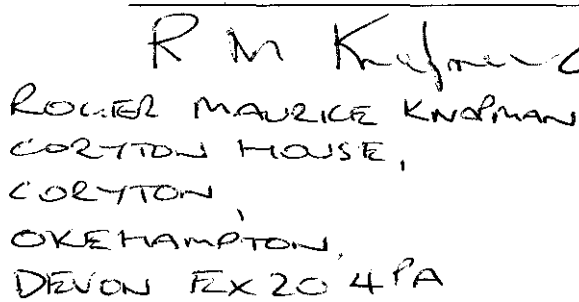 R M Knapman
ROGER MAURICE KNAPMAN
CORYTON HOUSE,
CORYTON,
OKEHAMPTON,
DEVON EX20 4PA